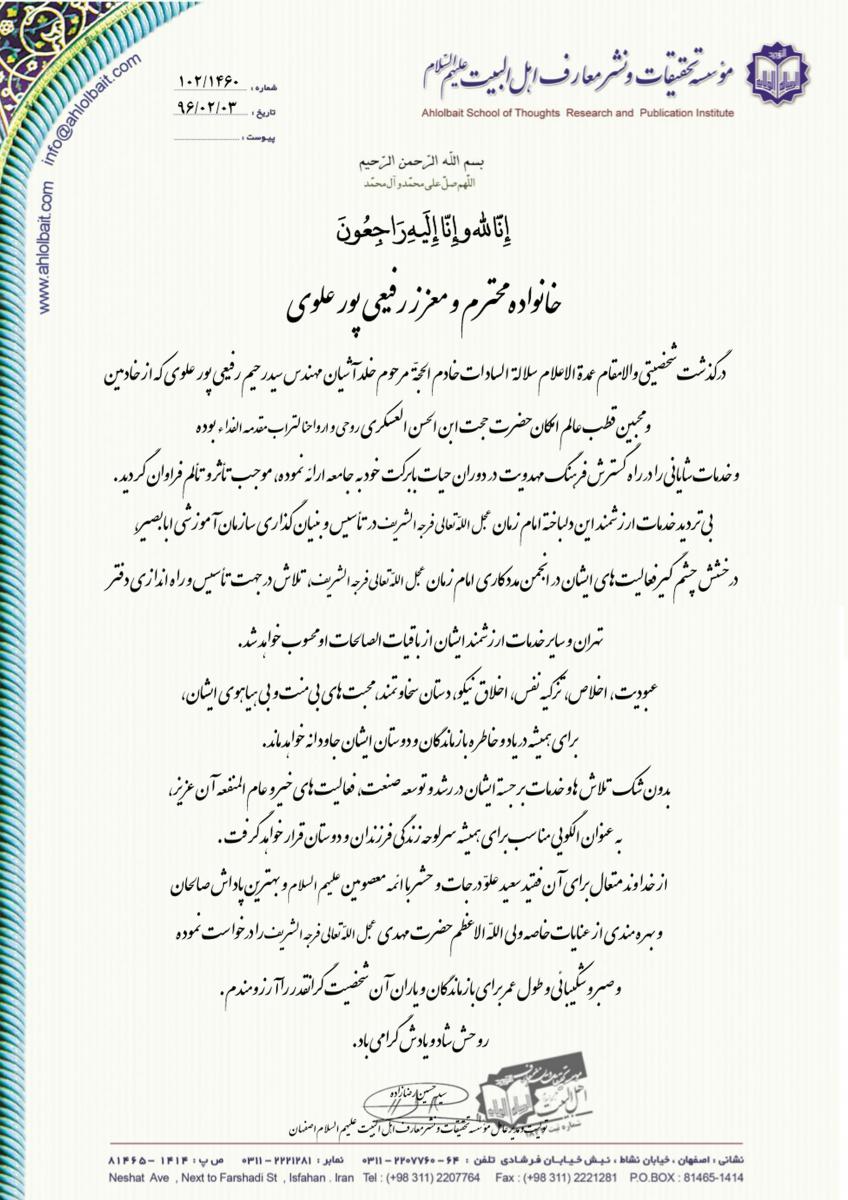 مؤسسه تحقیقات و نشر معارف اهل البیت علیهم السلام
Ahlolbait School of Thoughts Research and Publication Institute
شماره : ۱۰۲/۱۴۶۰
تاریخ : ۹۶/۰۲/۰۳
پیوست :
info@ahlolbait.com
www.ahlolbait.com
بسم الله الرّحمن الرّحیم
اللّهم صلّ علی محمّد و آل محمّد
إِنّا لله و إِنّا إِلَیهِ رَاجِعُونَ
خانواده محترم و معزز رفیعی پور علوی
درگذشت شخصیتی والامقام عمدة الاعلام سلالة السادات خادم الحجّة مرحوم خلد آشیان مهندس سید رحیم رفیعی پور علوی که از خادمین
و محبین قطب عالم امکان حضرت حجت ابن الحسن العسکری روحی و ارواحنا لتراب مقدمه الفداء بوده
و خدمات شایانی را در راه گسترش فرهنگ مهدویت در دوران حیات بابرکت خود به جامعه ارائه نموده، موجب تأثر و تألم فراوان گردید.
بی تردید خدمات ارزشمند این دلباخته امام زمان عجل اللّه تعالی فرجه الشریف در تأسیس و بنیان گذاری سازمان آموزشی ابابصیر،
درخشش چشم گیر فعالیت های ایشان در انجمن مددکاری امام زمان عجل اللّه تعالی فرجه الشریف، تلاش در جهت تأسیس و راه اندازی دفتر
تهران و سایر خدمات ارزشمند ایشان از باقیات الصالحات او محسوب خواهد شد.
عبودیت، اخلاص، تزکیه نفس، اخلاق نیکو، دستان سخاوتمند، محبت های بی منت و بی هیاهوی ایشان،
برای همیشه در یاد و خاطره بازماندگان و دوستان ایشان جاودانه خواهد ماند.
بدون شک تلاش ها و خدمات برجسته ایشان در رشد و توسعه صنعت، فعالیت های خیر و عام المنفعه آن عزیز،
به عنوان الگویی مناسب برای همیشه سرلوحه زندگی فرزندان و دوستان قرار خواهد گرفت.
از خداوند متعال برای آن فقید سعید علوّ درجات و حشر با ائمه معصومین علیهم السلام و بهترین پاداش صالحان
و بهره مندی از عنایات خاصه ولی اللّه الاعظم حضرت مهدی عجل اللّه تعالی فرجه الشریف را درخواست نموده
و صبر و شکیبائی و طول عمر برای بازماندگان و یاران آن شخصیت گرانقدر را آرزومندم.
روحش شاد و یادش گرامی باد.
سید حسین رضازاده
تولیت و مدیر عامل مؤسسه تحقیقات و نشر معارف اهل البیت علیهم السلام اصفهان
نشانی : اصفهان ، خیابان نشاط ، نبش خیابان فرشادی تلفن : ۶۴ - ۲۲۰۷۷۶۰ - ۰۳۱۱ نمابر : ۲۲۲۱۲۸۱ - ۰۳۱۱ ص پ : ۱۴۱۴ - ۸۱۴۶۵
Neshat Ave , Next to Farshadi St , Isfahan . Iran Tel : (+98 311) 2207764 Fax : (+98 311) 2221281 P.O.BOX : 81465-1414